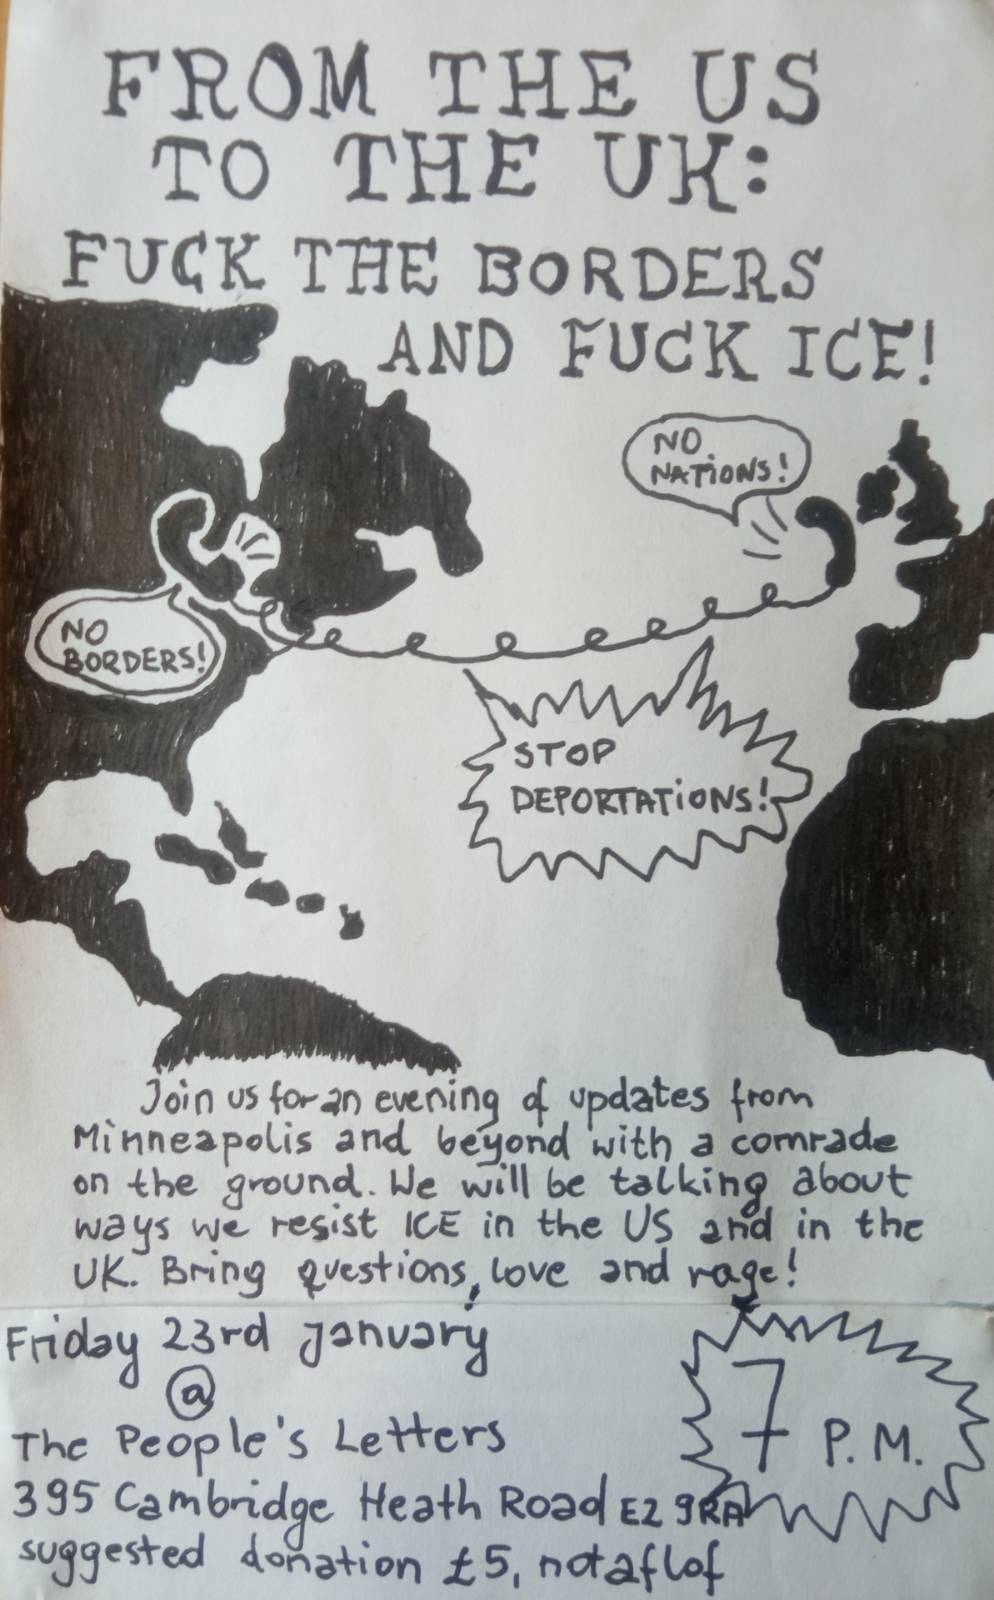 FROM THE US
TO THE UK:
FUCK THE BORDERS
AND FUCK ICE!
NO
NATIONS!
NO
BORDERS!
STOP
DEPORTATIONS!
Join us for an evening of updates from
Minneapolis and beyond with a comrade
on the ground. We will be talking about
ways we resist ICE in the US and in the
UK. Bring questions, love and rage!
Friday 23rd january
@
The People's Letters
395 Cambridge Heath Road E2 9RA
suggested donation £5, notaflof
7 P.M.